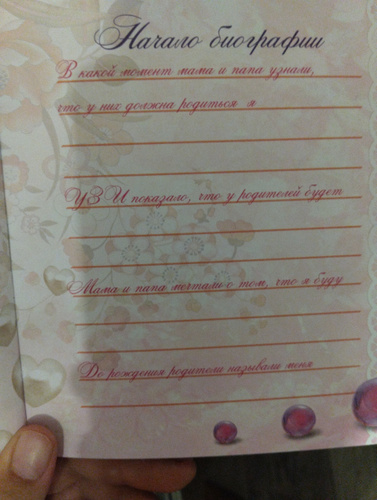 Начало биографии
В какой момент мама и папа узнали,
что у них должна родиться я
УЗИ показало, что у родителей будет
Мама и папа мечтали о том, что я буду
До рождения родители называли меня